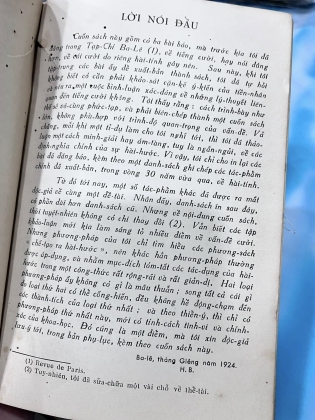 LỜI NÓI ĐẦU
Cuốn sách này gồm cả ba bài báo, mà trước kia tôi đã
đăng trong Tạp-Chí Ba-Lê (1), về tiếng cười, hay nói đúng
hơn, về cái cười do riêng hài-tính gây nên. Sau này, khi tôi
tập-trung các bài ấy để xuất-bản thành sách, tôi đã tự hỏi
không biết có cần phải khảo-sát cặn kẽ ý-kiến của tiền-nhân
và mở ra một cuộc bình-luận xác-đáng về những lý-thuyết liên-
quan đến tiếng cười không. Tôi thấy rằng : cách trình-bày như
thế sẽ vô-cùng phức-tạp, và phải biên-chép thành một cuốn sách
lớn, không phù-hợp với trình-độ quan-trọng của vấn-đề. Vả
chăng, mỗi khi một tỉ-dụ làm cho tôi nghĩ tới, thì tôi đã thảo-
luận một cách minh-giải hay ám-tàng, tuy là ngắn-ngủi, về các
định-nghĩa chính của sự hài-hước. Vì vậy, tôi chỉ cho in lại các
bài đã đăng báo, kèm theo một danh-sách ghi chép các tác-phẩm
chính đã xuất-bản, trong vòng 30 năm cửa qua, về hài-tính.
Từ đó tới nay, một số tác-phẩm khác đã được ra mắt
độc-giả về cùng một đề-tài. Nhân đấy, danh-sách in sau đây,
có phần dài hơn danh-sách cũ. Nhưng về nội-dung cuốn sách,
thời tuyệt-nhiên không có chi thay đổi (2). Vẫn biết các tập
khảo-luận mới kia làm sáng tỏ nhiều điểm về vấn-đề cười.
Nhưng phương-pháp của tôi chỉ tìm hiểu các phương-sách
« chế-tạo ra hài-hước », nên khác hẳn phương-pháp thường
được áp-dụng, và nhằm mục-đích tóm-tắt các tác-dụng của hài-
hước trong một công-thức rất rộng-rãi và rất giản-dị. Hai loại
phương-pháp ấy không có gì là mâu thuẫn ; song tất cả cái gì
do loại thứ hai có thể cống-hiến, đều không hề động-chạm đến
các thành-tích của loại thứ nhất ; và theo thiển-ý, thì chỉ có
phương-pháp thứ nhất này, mới có tính-cách tinh-vi và chính-
xác của khoa-học. Đó cũng là một điểm, mà tôi xin độc-giả
lưu ý tới, trong bản phụ-lục, kèm theo cuốn sách này.
Ba-lê, tháng Giêng năm 1924.
H. B.
(1) Revue de Paris.
(2) Tuy-nhiên, tôi đã sửa-chữa một vài chỗ về thể-tài.